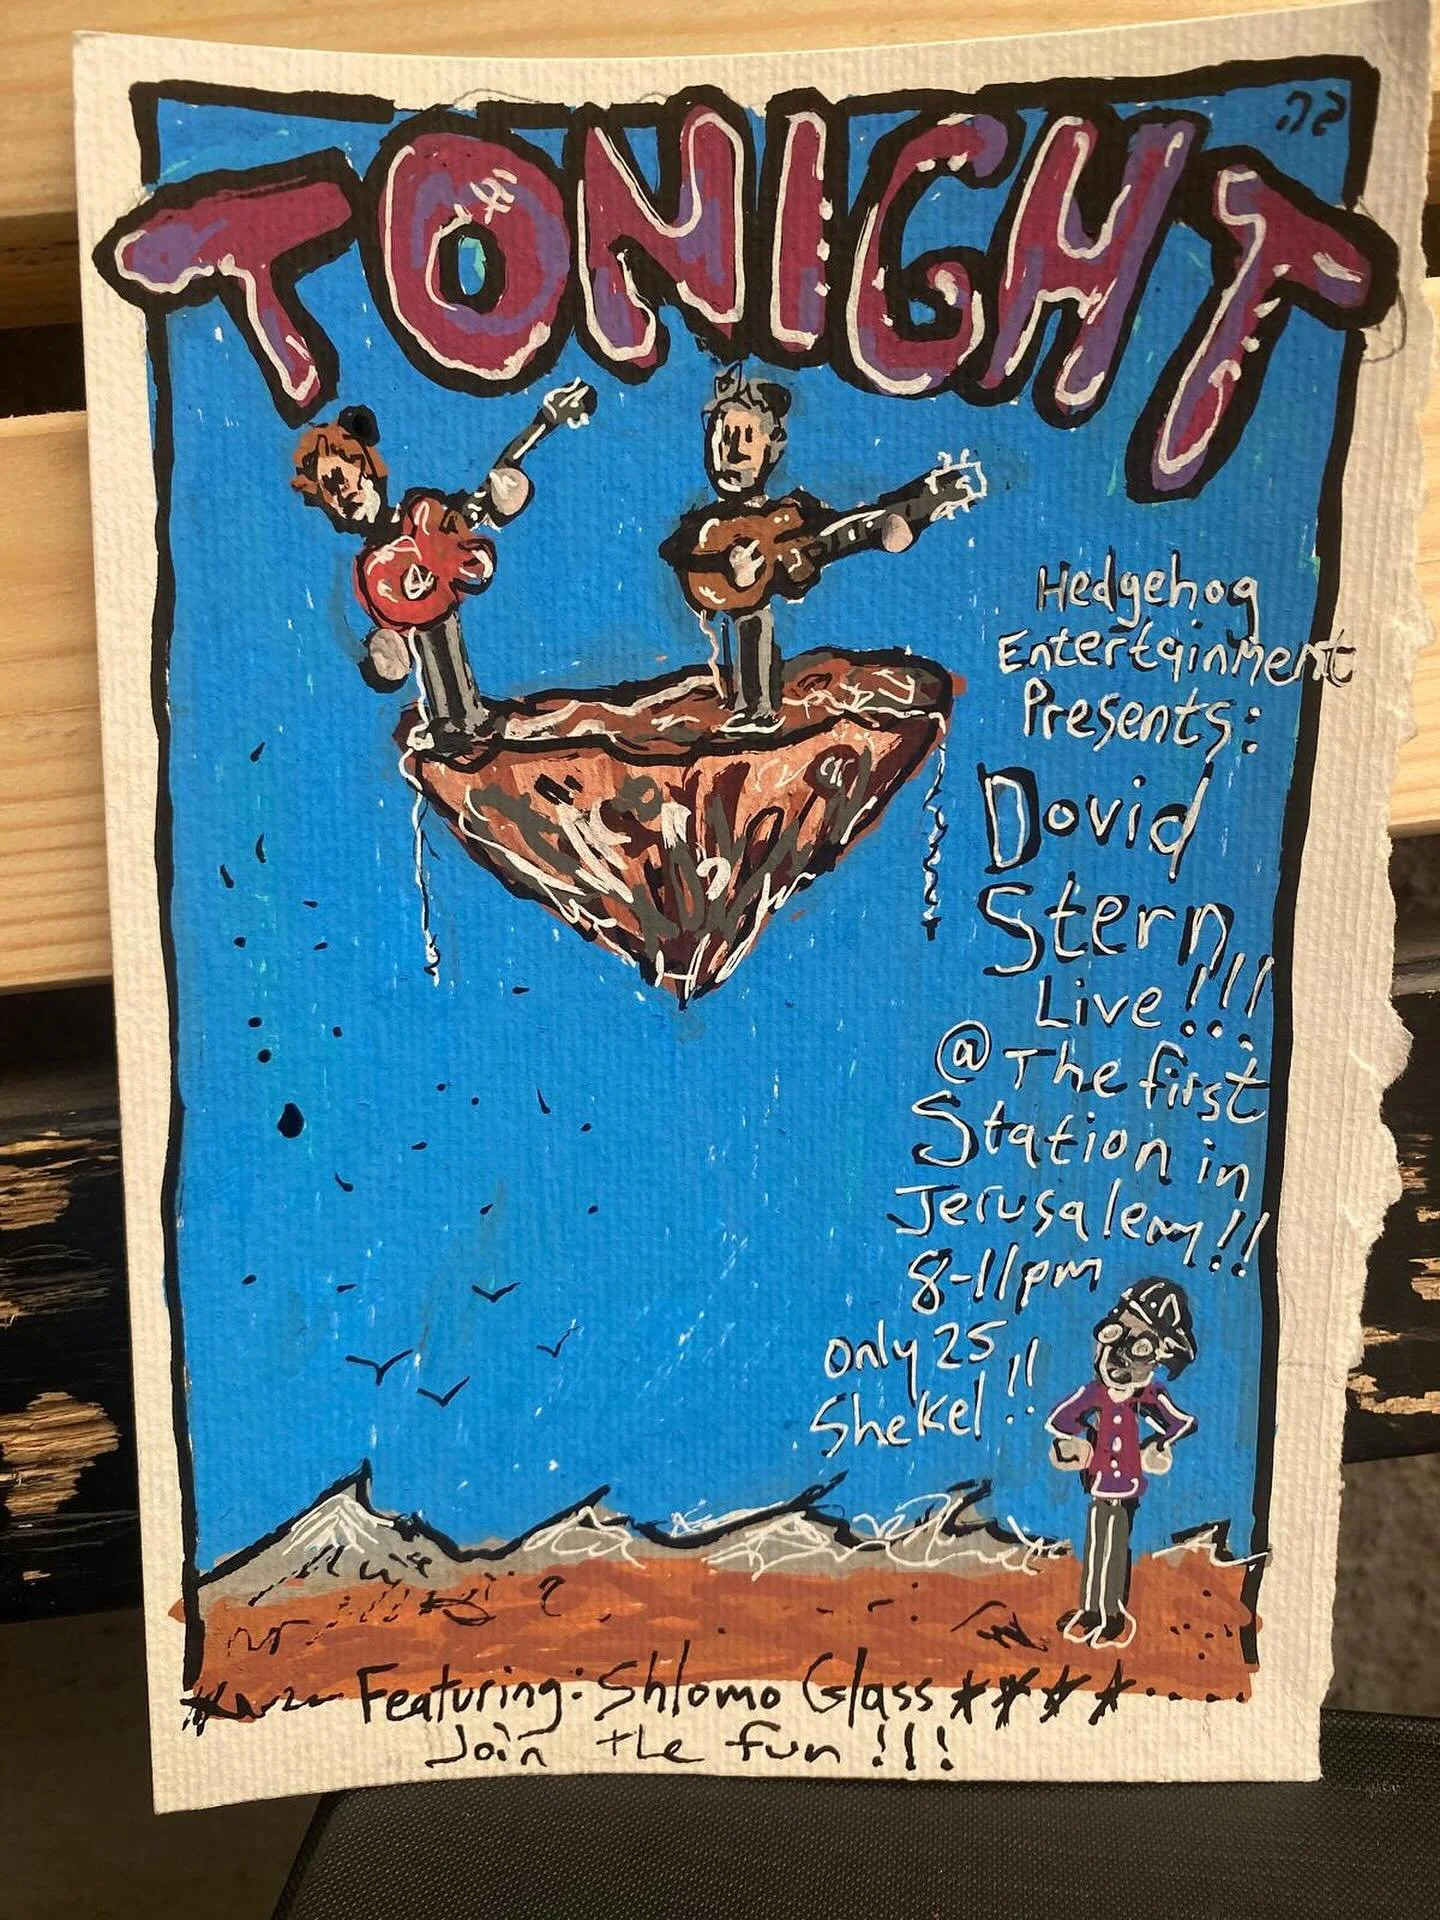 TONIGHT
Hedgehog
Entertainment
Presents:
Dovid
Stern
Live!!!
@ The first
Station in
Jerusalem!!
8-11pm
only 25
Shekel!!
Featuring: Shlomo Glass
Join the fun!!!